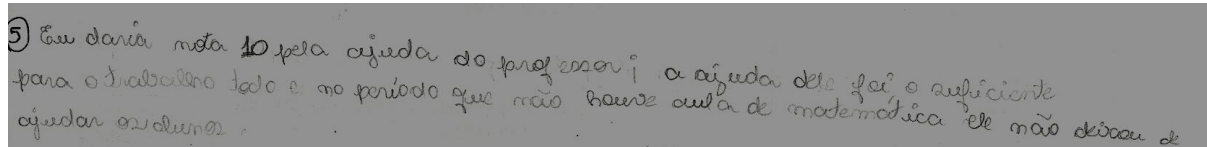 5 Eu daria nota 10 pela ajuda do professor; a ajuda dele foi o suficiente
para o trabalho todo e no período que não houve aula de matemática ele não deixou de
ajudar os alunos.